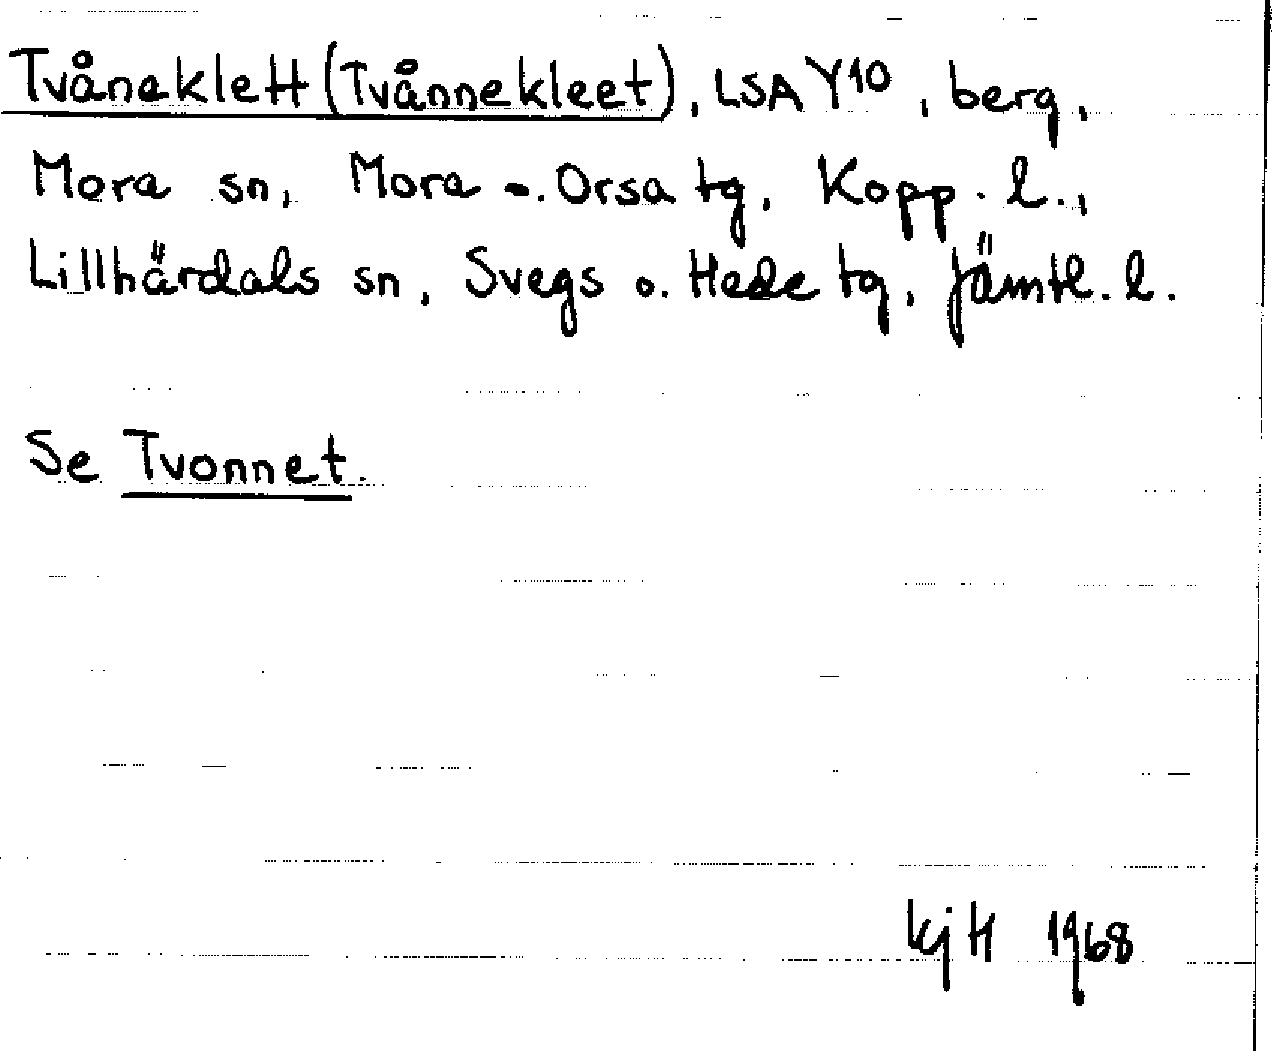 Tvåneklett (Tvånnekleet), LSA Y10, berg,
Mora sn, Mora - Orsa tg, Kopp. l.,
Lillhärdals sn, Svegs o. Hede tg, Jämtl. l.
Se Tvonnet.
KjH 1968